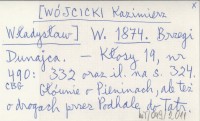 [WÓJCICKI Kazimierz
Władysław] W. 1874. Brzegi
Dunajca. — Kłosy 19, nr
490: 332 oraz il. na s. 324.
CBG Głównie o Pieninach, ale też
o drogach przez Podhale do Tatr.